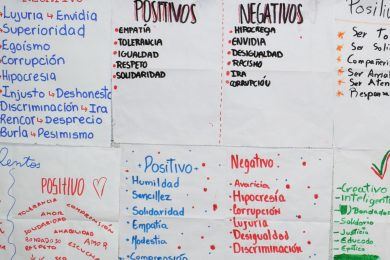 Lujuria Envidia
Superioridad
Egoísmo
Corrupción
Hipocresia
Injusto Deshonesto
Discriminación Ira
Rencor Desprecio
Burla Pesimismo
POSITIVOS
EMPATÍA
TOLERANCIA
IGUALDAD
RESPETO
SOLIDARIDAD
NEGATIVOS
HIPOCREGA
ENVIDIA
DESIGUALDAD
RACISMO
IRA
CORRUPCIÓN
Ser
Ser
Ser
Ser
POSITIVO
TOLERANCIA
AMOR
COMPRENSIÓN
SOLIDARIDAD
AMABILIDAD
AMOR
RESPETO
Positivo
Humildad
Sencillez
Solidaridad
Empatía
Modestia
Comprensión
Negativo
Avaricia
Hipocresía
Corrupción
Lujuria
Desigualdad
Discriminación
Creativo
Bondadoso
Solidario
Justicia
Educado